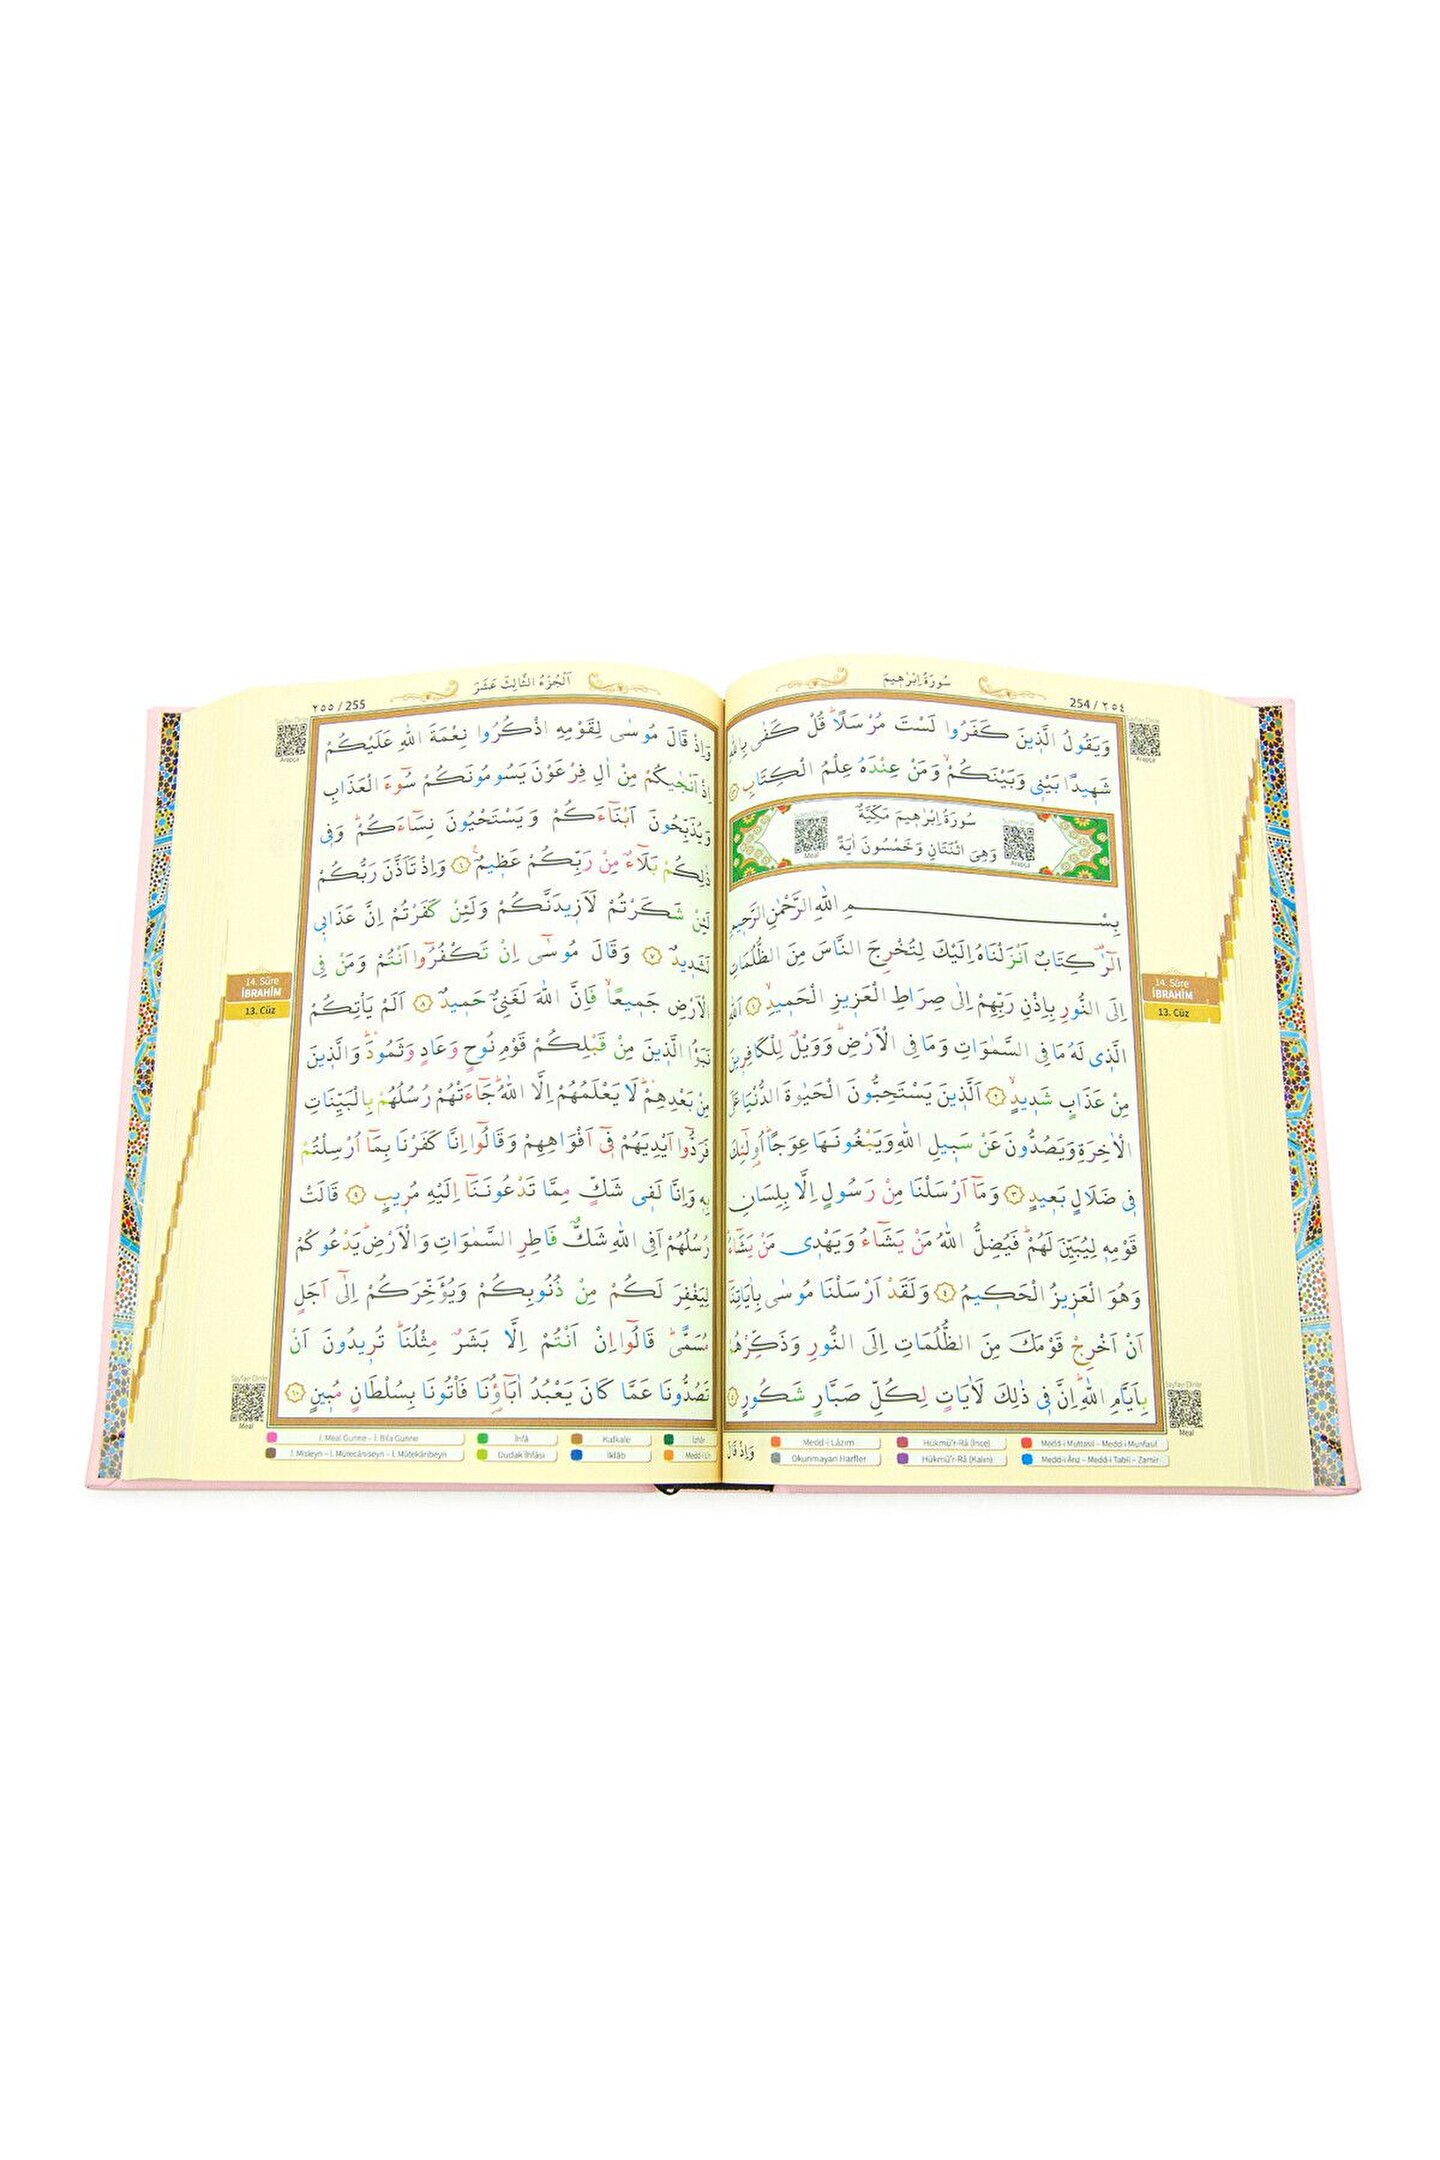 سُورَةُ اِبْرٰهِيمَ
254 / ٢٥٤
وَيَقُولُ الَّذ۪ينَ كَفَرُوا لَسْتَ مُرْسَلًاۜ قُلْ كَفٰى بِاللّٰهِ
شَه۪يدًا بَيْن۪ي وَبَيْنَكُمْۙ وَمَنْ عِنْدَهُ عِلْمُ الْكِتَابِ ﴿٤٣﴾
سُورَةُ اِبْرٰه۪يمَ مَكِّيَّةٌ
وَهِيَ اثْنَتَانِ وَخَمْسُونَ اٰيَةً
Meal
Arapça
بِسْمِ اللّٰهِ الرَّحْمٰنِ الرَّح۪يمِ
الٓرٰ۠ كِتَابٌ اَنْزَلْنَاهُ اِلَيْكَ لِتُخْرِجَ النَّاسَ مِنَ الظُّلُمَاتِ
اِلَى النُّورِ بِاِذْنِ رَبِّهِمْ اِلٰى صِرَاطِ الْعَز۪يزِ الْحَم۪يدِۙ ﴿١﴾ اَللّٰهِ
الَّذ۪ي لَهُ مَا فِي السَّمٰوَاتِ وَمَا فِي الْاَرْضِۜ وَوَيْلٌ لِلْكَافِر۪ينَ
مِنْ عَذَابٍ شَد۪يدٍۙ ﴿٢﴾ اَلَّذ۪ينَ يَسْتَحِبُّونَ الْحَيٰوةَ الدُّنْيَا عَلَى
الْاٰخِرَةِ وَيَصُدُّونَ عَنْ سَب۪يلِ اللّٰهِ وَيَبْغُونَهَا عِوَجًاۜ اُو۬لٰٓئِكَ
ف۪ي ضَلَالٍ بَع۪يدٍ ﴿٣﴾ وَمَٓا اَرْسَلْنَا مِنْ رَسُولٍ اِلَّا بِلِسَانِ
قَوْمِه۪ لِيُبَيِّنَ لَهُمْۜ فَيُضِلُّ اللّٰهُ مَنْ يَشَٓاءُ وَيَهْد۪ي مَنْ يَشَٓاءُۜ
وَهُوَ الْعَز۪يزُ الْحَك۪يمُ ﴿٤﴾ وَلَقَدْ اَرْسَلْنَا مُوسٰى بِاٰيَاتِنَٓا
اَنْ اَخْرِجْ قَوْمَكَ مِنَ الظُّلُمَاتِ اِلَى النُّورِ وَذَكِّرْهُمْ
بِاَيَّامِ اللّٰهِۜ اِنَّ ف۪ي ذٰلِكَ لَاٰيَاتٍ لِكُلِّ صَبَّارٍ شَكُورٍ ﴿٥﴾
وَاِذْ قَالَ
Medd-i Lâzım
Hükmü'r-Râ (İnce)
Medd-i Muttasıl – Medd-i Munfasıl
Okunmayan Harfler
Hükmü'r-Râ (Kalın)
Medd-i Ârız – Medd-i Tabîî – Zamir
Arapça
14. Sûre
İBRAHİM
13. Cüz
Sayfayı Dinle
Meal
اَلْجُزْءُ الثَّالِثَ عَشَرَ
٢٥٥ / 255
وَاِذْ قَالَ مُوسٰى لِقَوْمِهِ اذْكُرُوا نِعْمَةَ اللّٰهِ عَلَيْكُمْ
اِذْ اَنْجٰيكُمْ مِنْ اٰلِ فِرْعَوْنَ يَسُومُونَكُمْ سُٓوءَ الْعَذَابِ
وَيُذَبِّحُونَ اَبْنَٓاءَكُمْ وَيَسْتَحْيُونَ نِسَٓاءَكُمْۜ وَف۪ي
ذٰلِكُمْ بَلَٓاءٌ مِنْ رَبِّكُمْ عَظ۪يمٌ۟ ﴿٦﴾ وَاِذْ تَاَذَّنَ رَبُّكُمْ
لَئِنْ شَكَرْتُمْ لَاَز۪يدَنَّكُمْ وَلَئِنْ كَفَرْتُمْ اِنَّ عَذَاب۪ي
لَشَد۪يدٌ ﴿٧﴾ وَقَالَ مُوسٰٓى اِنْ تَكْفُرُٓوا اَنْتُمْ وَمَنْ فِي
الْاَرْضِ جَم۪يعًاۙ فَاِنَّ اللّٰهَ لَغَنِيٌّ حَم۪يدٌ ﴿٨﴾ اَلَمْ يَأْتِكُمْ
نَبَؤُا الَّذ۪ينَ مِنْ قَبْلِكُمْ قَوْمِ نُوحٍ وَعَادٍ وَثَمُودَۜ وَالَّذ۪ينَ
مِنْ بَعْدِهِمْۜ لَا يَعْلَمُهُمْ اِلَّا اللّٰهُۜ جَٓاءَتْهُمْ رُسُلُهُمْ بِالْبَيِّنَاتِ
فَرَدُّٓوا اَيْدِيَهُمْ ف۪ٓي اَفْوَاهِهِمْ وَقَالُٓوا اِنَّا كَفَرْنَا بِمَٓا اُرْسِلْتُمْ
بِه۪ وَاِنَّا لَف۪ي شَكٍّ مِمَّا تَدْعُونَنَٓا اِلَيْهِ مُر۪يبٍ ﴿٩﴾ قَالَتْ
رُسُلُهُمْ اَفِي اللّٰهِ شَكٌّ فَاطِرِ السَّمٰوَاتِ وَالْاَرْضِۜ يَدْعُوكُمْ
لِيَغْفِرَ لَكُمْ مِنْ ذُنُوبِكُمْ وَيُؤَخِّرَكُمْ اِلٰٓى اَجَلٍ
مُسَمًّىۜ قَالُٓوا اِنْ اَنْتُمْ اِلَّا بَشَرٌ مِثْلُنَاۜ تُر۪يدُونَ اَنْ
تَصُدُّونَا عَمَّا كَانَ يَعْبُدُ اٰبَٓاؤُ۬نَا فَأْتُونَا بِسُلْطَانٍ مُب۪ينٍ ﴿١٠﴾
İ. Meal Gunne – İ. Bila Gunne
İhfâ
Kalkale
İzhâr
İ. Misleyn – İ. Mütecâniseyn – İ. Mütekâribeyn
Dudak İhfâsı
İklâb
Medd-i Lîn
Sayfayı Dinle
Arapça
14. Sûre
İBRAHİM
13. Cüz
Sayfayı Dinle
Meal